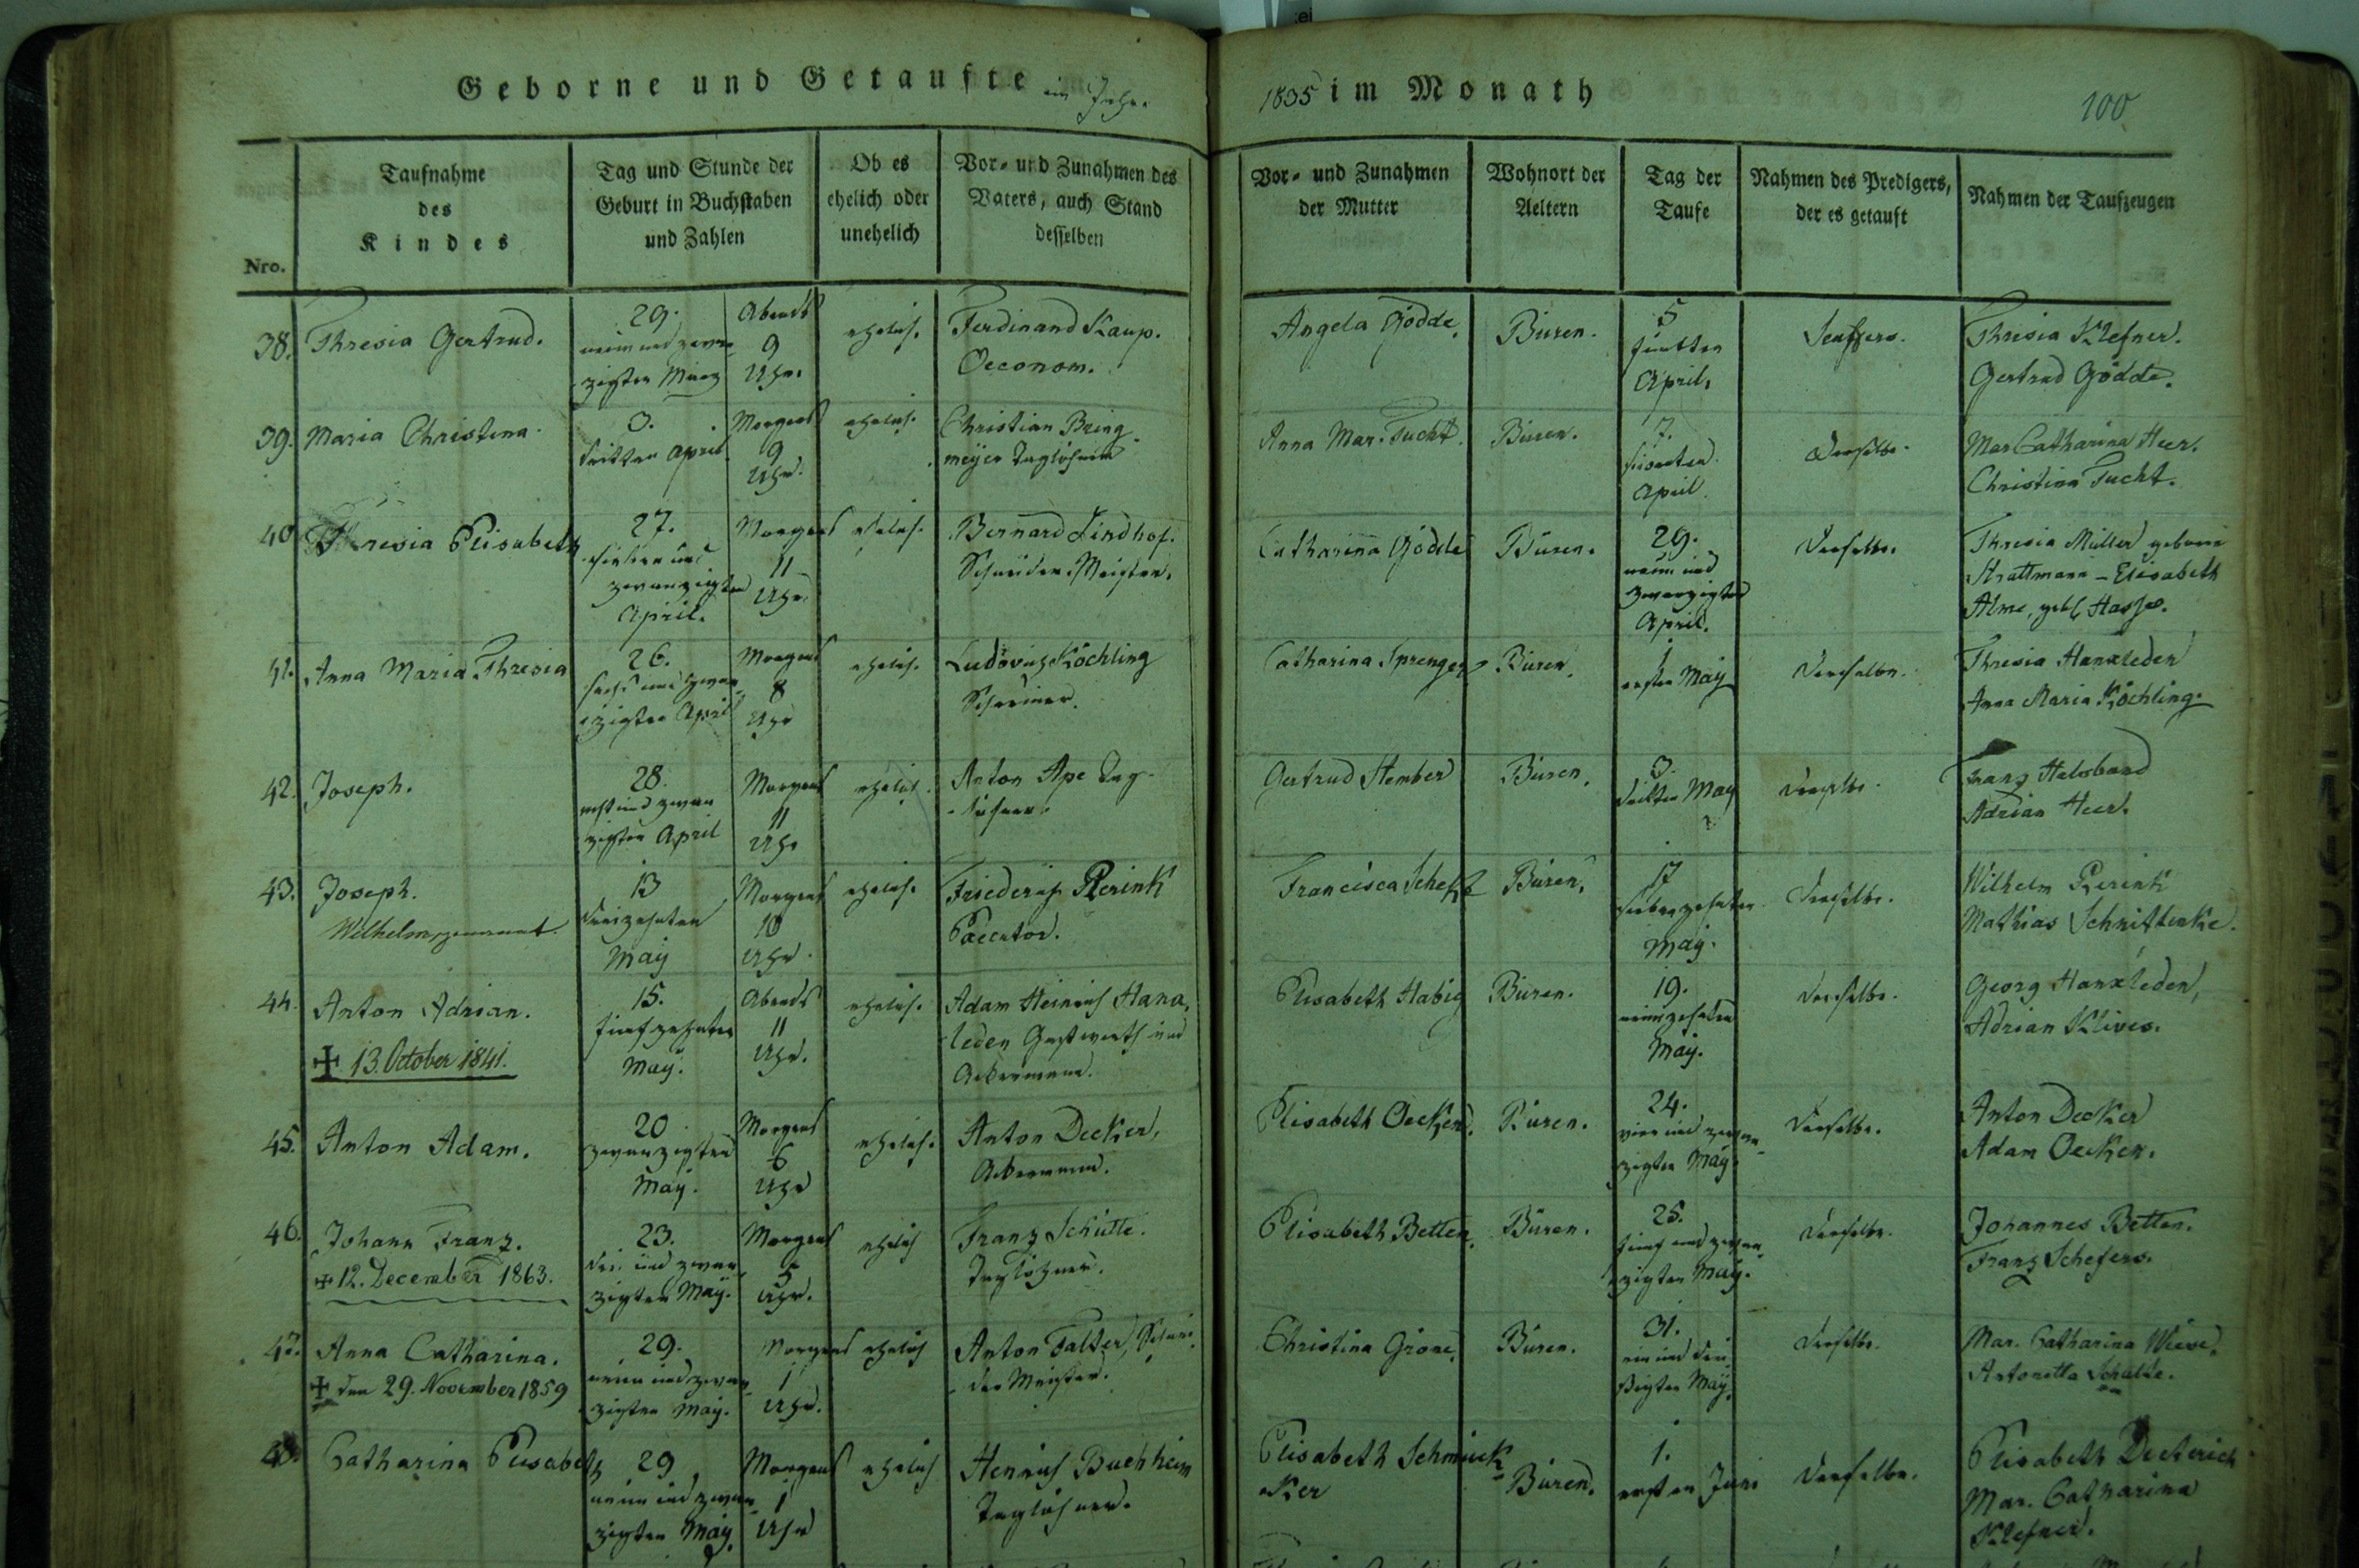 Geborne und Getaufte im Jahr
1835 im Monath
100
Nro.
Taufnahme
des
Kindes
Tag und Stunde der
Geburt in Buchstaben
und Zahlen
Ob es
ehelich oder
unehelich
Vor- und Zunahmen des
Vaters, auch Stand
desselben
Vor- und Zunahmen
der Mutter
Wohnort der
Aeltern
Tag der
Taufe
Nahmen des Predigers,
der es getauft
Nahmen der Taufzeugen
38.
Thresia Gertrud.
29.
neun und zwan
zigsten März
Abends
9
Uhr.
ehelich.
Ferdinand Kaup.
Oeconom.
Angela Gödde.
Büren.
5
fünften
April.
Thresia Klefner.
Gertrud Gödde.
39.
Maria Christina.
3.
dritten April
Morgens
9
Uhr.
ehelich.
Christian Bring-
meyer Taglöhner
Anna Mar. Tucht.
Büren.
7.
siebenten
April.
Derselbe.
Mar Catharina Heer.
Christina Tucht.
40
Thresia Elisabeth
27.
sieben und
zwanzigsten
April.
Morgens
11
Uhr.
ehelich.
Bernard Lindhof.
Schneider Meister.
Catharina Gödde
Büren.
29.
neun und
zwanzigsten
April.
Derselbe.
Thresia Müller geborne
Strattmann - Elisabeth
Alme, geb. Hasse.
41.
Anna Maria Thresia
26.
sechs und zwan
zigsten April
Morgens
8
Uhr
ehelich.
Ludovich Köchling
Schreiner.
Catharina Sprenger
Büren.
1
ersten May
Derselbe.
Thresia Hanxleden
Anna Maria Köchling.
42.
Joseph.
28.
acht und zwan
zigsten April
Morgens
11
Uhr
ehelich.
Anton Ape Tag-
löhner.
Gertrud Hember
Büren.
3.
dritten May
Derselbe.
Franz Halsband
Adrian Heer.
43.
Joseph.
Wilhelm, genannt.
13
dreizehnten
May
Morgens
10
Uhr.
ehelich.
Friederich Rerink
Executor.
Francisca
Büren.
17
siebenzehnten
May.
Derselbe.
Wilhelm Rerink
Mathias Schnittenke.
44.
Anton Adrian.
✠ 13. October 1841.
15.
fünfzehnten
May.
Abends
11
Uhr.
ehelich.
Adam Heinrich Hanx-
leden Gastwirth und
Ackermann.
Elisabeth Habig
Büren.
19.
neunzehnten
May.
Derselbe.
Georg Hanxleden,
Adrian Klives.
45.
Anton Adam.
20
zwanzigsten
May.
Morgens
6
Uhr
ehelich.
Anton Decker,
Ackermann.
Elisabeth Oecken.
Büren.
24.
vier und zwan-
zigsten May.
Derselbe.
Anton Decker
Adam Oecken.
46.
Johann Franz.
✠ 12. December 1863.
23.
drei und zwan
zigsten May.
Morgens
5
Uhr.
ehelich
Franz Schütte.
Taglöhner.
Elisabeth Betten.
Büren.
25.
fünf und zwan-
zigsten May.
Derselbe.
Johannes Betten.
Franz Schefers.
47.
Anna Catharina.
✠ den 29. November 1859
29.
neun und zwan
zigsten May.
Morgens
1
Uhr.
ehelich
Anton Falter, Schnei-
der Meister.
Christina Grone.
Büren.
31.
ein und drei
ßigsten May.
Derselbe.
Mar. Catharina Wiese.
Antonetta Schulte.
48.
Catharina Elisabeth
29
neun und zwan-
zigsten May.
Morgens
1
Uhr
ehelich
Henrich Buchheim
Taglöhner.
Elisabeth Schmück-
ker
Büren.
1.
ersten Juni
Derselbe.
Elisabeth Dieterich
Mar. Catharina
Klefner.